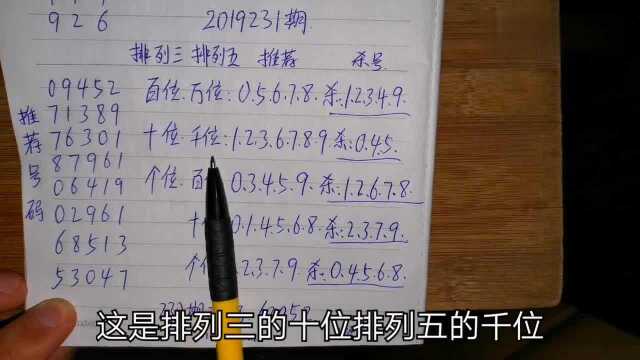 926
2019231期
排列三 排列五 推荐 杀号
推荐号码
09452
71389
76301
87961
06419
02961
68513
53047
百位.万位:0.5.6.7.8.杀:1.2.3.4.9.
十位.千位:1.2.3.6.7.8.9.杀:0.4.5.
个位.百 0.3.4.5.9.杀:1.2.6.7.8.
十 0.1.4.5.6.8.杀:2.3.7.9.
个 2.3.7.9.杀:0.4.5.6.8.
这是排列三的十位排列五的千位